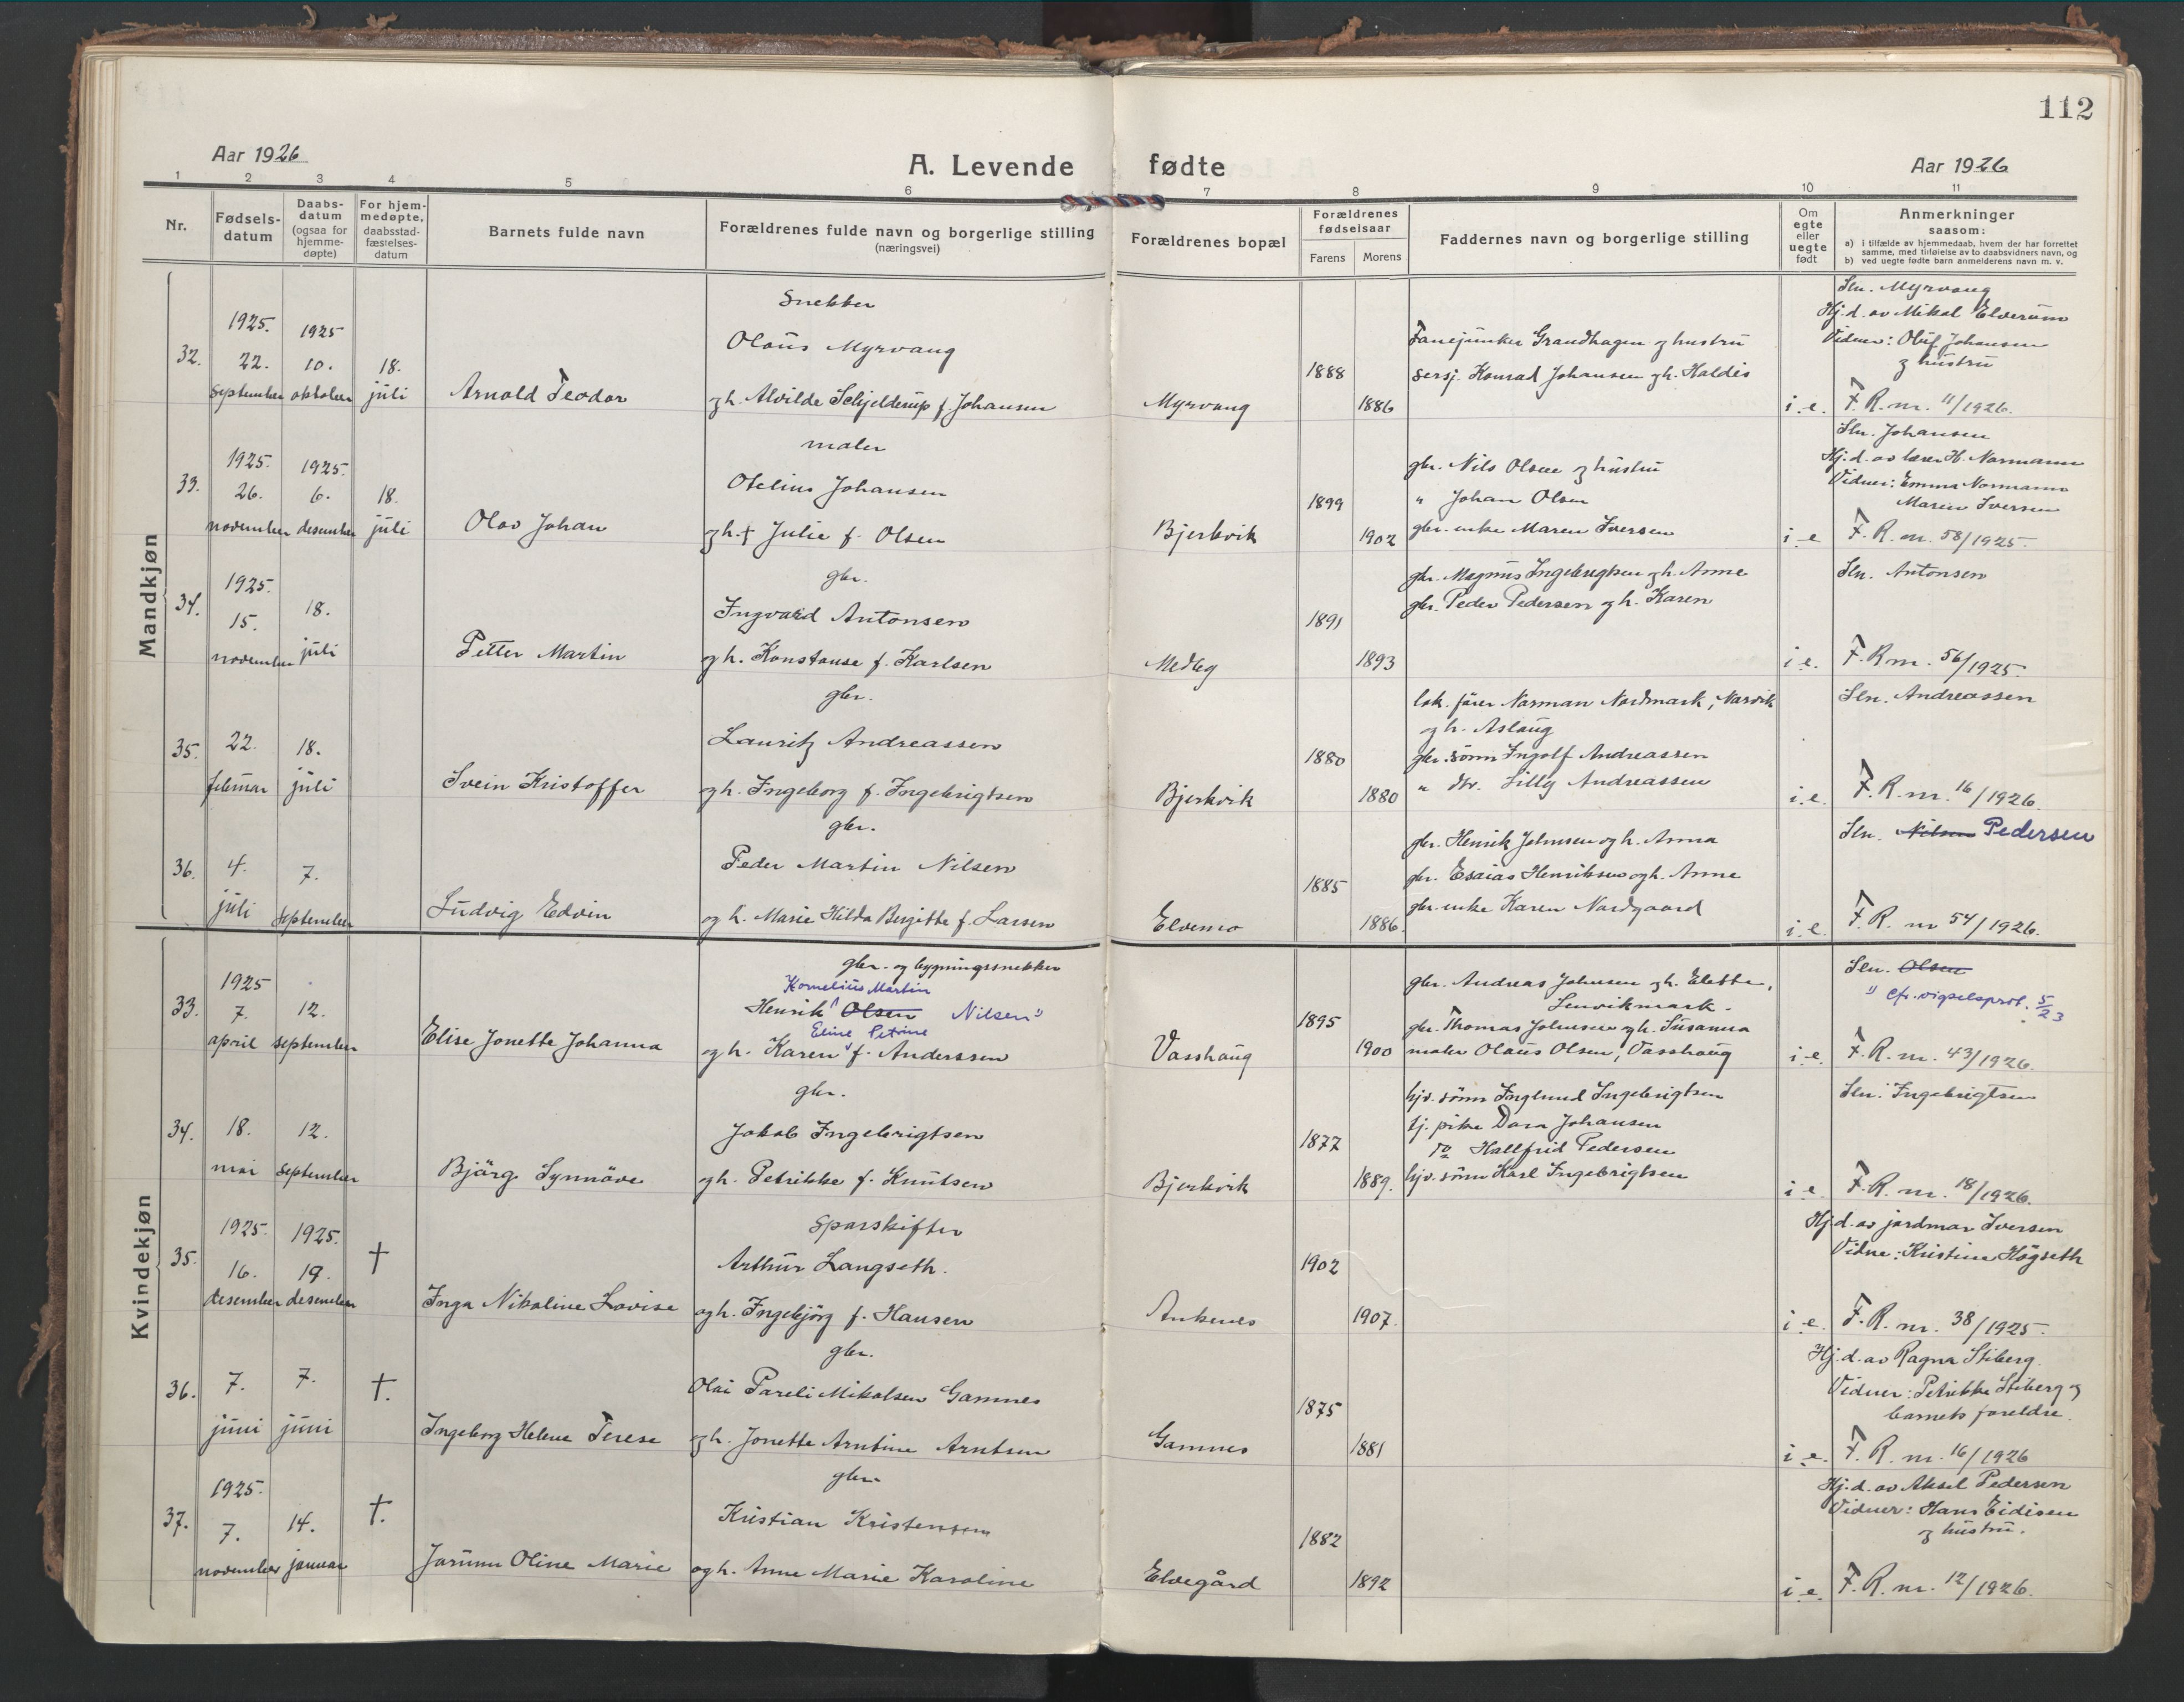 112
Aar 1926
A. Levende fødte
Aar 1926
1 2 3 4 5 6 7 8 9 10 11
Nr.
Fødsels-
datum
Daabs-
datum
(ogsaa for
hjemme-
døpte)
For hjem-
medøpte,
daabsstad-
fæstelses-
datum
Barnets fulde navn
Forældrenes fulde navn og borgerlige stilling
(næringsvei)
Forældrenes bopæl
Forældrenes
fødselsaar
Farens Morens
Faddernes navn og borgerlige stilling
Om
egte
eller
uegte
født
Anmerkninger
saasom:
a) i tilfælde av hjemmedaab, hvem der har forrettet
samme, med tilføielse av to daabsvidners navn, og
b) ved uegte fødte barn anmelderens navn m. v.
Mandkjøn
32.
1925.
22.
september
1925
10.
oktober
18.
juli
Arnold Teodor
Snekker
Olaus Myrvang
og h. Alvilde Schjelderup f. Johansen
Myrvang
1888
1886
Fanejunker Grandhagen og hustru
sersj. Konrad Johansen og h. Haldis
i. e.
Sln. Myrvang
Hj.d. av Mikal Elverum
Vidner: Oluf Johansen
og hustru
F. R. nr. 11/1926.
33.
1925.
26.
november
1925.
6.
desember
18.
juli
Olav Johan
maler
Otelius Johansen
og h. † Julie f. Olsen
Bjerkvik
1899
1902
gbr. Nils Olsen og hustru
" Johan Olsen
gbr. enke Maren Iversen
i. e
Sln. Johansen
Hj.d. av lærer H. Normann
Vidner: Emma Normann
Marie Iversen
F. R. nr. 58/1925.
34.
1925.
15.
november
18.
juli
Petter Martin
gbr.
Ingvard Antonsen
og h. Konstanse f. Karlsen
Medby
1891
1893
gbr. Magnus Ingebrigtsen og h. Anne
gbr. Peder Pedersen og h. Karen
i. e.
Sln. Antonsen
F. R nr. 56/1925.
35.
22.
februar
18.
juli
Svein Kristoffer
gbr.
Lauritz Andreassen
og h. Ingeborg f. Ingebrigtsen
Bjerkvik
1880
1880
lok. fører Norman Nordmark, Narvik
og h. Aslaug
gbr. sønn Ingolf Andreassen
" dtr. Lilly Andreassen
i. e.
Sln. Andreassen
F. R. nr. 16/1926.
36.
4.
juli
7.
september
Ludvig Edvin
gbr.
Peder Martin Nilsen
og h. Marie Hilda Bergitte f. Larsen
Elvemo
1885
1886.
gbr. Henrik Johnsen og h. Anna
gbr. Esaias Henriksen og h. Anne
gbr. enke Karen Nordgaard
i. e.
Sln. Nilsen Pedersen
F. R. nr 54/1926.
Kvindekjøn
33.
1925
7.
april
12.
september
Elise Jonette Johanna
gbr. og bygningssnekker
Kornelius Martin
Henrik Olsen Nilsen
Eline Petrine
og h. Karen f. Anderssen
Vasshaug
1895
1900
gbr. Andreas Johnsen og h. Elette,
Lenvikmark.
gbr. Thomas Johnsen og h. Susanna
maler Olaus Olsen, Vasshaug
i. e.
Sln. Olsen
cfr. vigselsprot. 5/23
F. R. nr. 43/1926.
34.
18.
mai
12.
september
Bjørg Synnøve
gbr.
Jakob Ingebrigtsen
og h. Petrikke f. Knutsen
Bjerkvik
1877
1889.
hjv. sønn Englund Ingebrigtsen
tj. pike Dora Johansen
do Hallfrid Pedersen
hjv. sønn Karl Ingebrigtsen
i. e.
Sln. Ingebrigtsen
F. R. nr. 18/1926.
35.
1925.
16.
desember
1925.
19.
desember
†
Inga Nikoline Lovise
Sporskifter
Arthur Langseth.
og h. Ingebjørg f. Hansen
Ankenes
1902
1907.
i. e.
Hj.d. av jordmor Iversen
Vidne: Kristine Høgseth
F. R. nr. 38/1925.
36.
7.
juni
7.
juni
†.
Ingeborg Helene Terese
gbr.
Olai Pareli Mikalsen Gamnes
og h. Jonette Arntine Arntsen
Gamnes
1875
1881
i. e.
Hj.d. av Ragna Stiberg.
Vidner: Petrikke Stiberg og
barnets foreldre.
F. R. nr. 16/1926
37.
1925.
7.
november
14.
januar
†.
Jorunn Oline Marie
gbr.
Kristian Kristensen
og h. Anne Marie Karoline
Elvegård
1882
1892
i. e.
Hj.d. av Aksel Pedersen
Vidner: Hans Eidisen
og hustru.
F. R. nr. 12/1926.